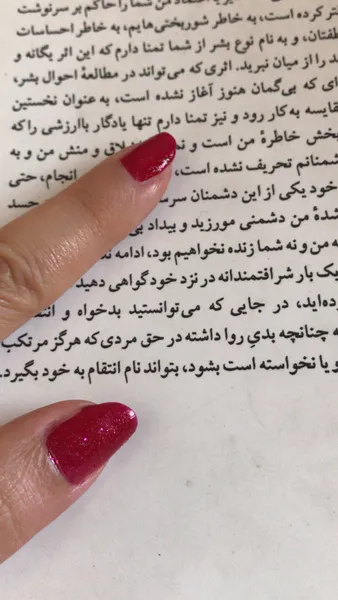 تر کرده است، به خاطر شوربختی‌هایم، به خاطر احساسات
طفتان، و به نام نوع بشر از شما تمنا دارم که این اثر یگانه و
ید را از میان نبرید. اثری که می‌تواند در مطالعهٔ احوال بشر،
ای که بی‌گمان هنوز آغاز نشده است، به عنوان نخستین
قایسه به کار رود و نیز تمنا دارم تنها یادگار باارزشی را که
بخش خاطرهٔ من است و لاق و منش من و به
شمنانم تحریف نشده است، انجام، حتی
خود یکی از این دشمنان حسد
شدهٔ من دشمنی مورزید و بیداد
نه من و نه شما زنده نخواهیم بود، ادامه
یک بار شرافتمندانه در نزد خود گواهی دهید
ده‌اید، در جایی که می‌توانستید بدخواه و
ه چنانچه بدیِ روا داشته در حق مردی که هرگز مرتکب
و یا نخواسته است بشود، بتواند نام انتقام به خود بگیرد.